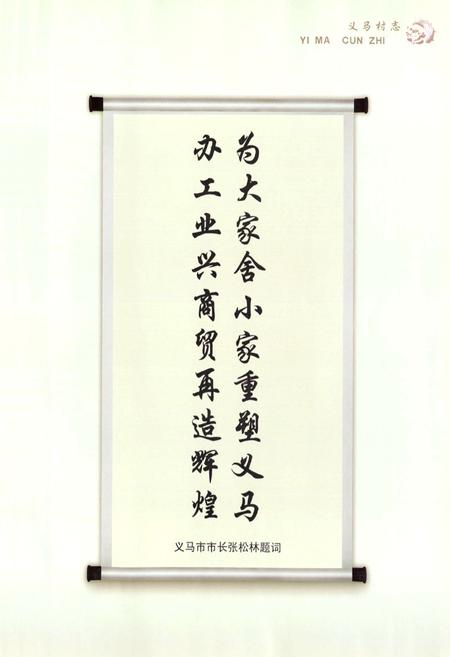 义马村志
YI MA CUN ZHI
为大家舍小家重塑义马
办工业兴商贸再造辉煌
义马市市长张松林题词